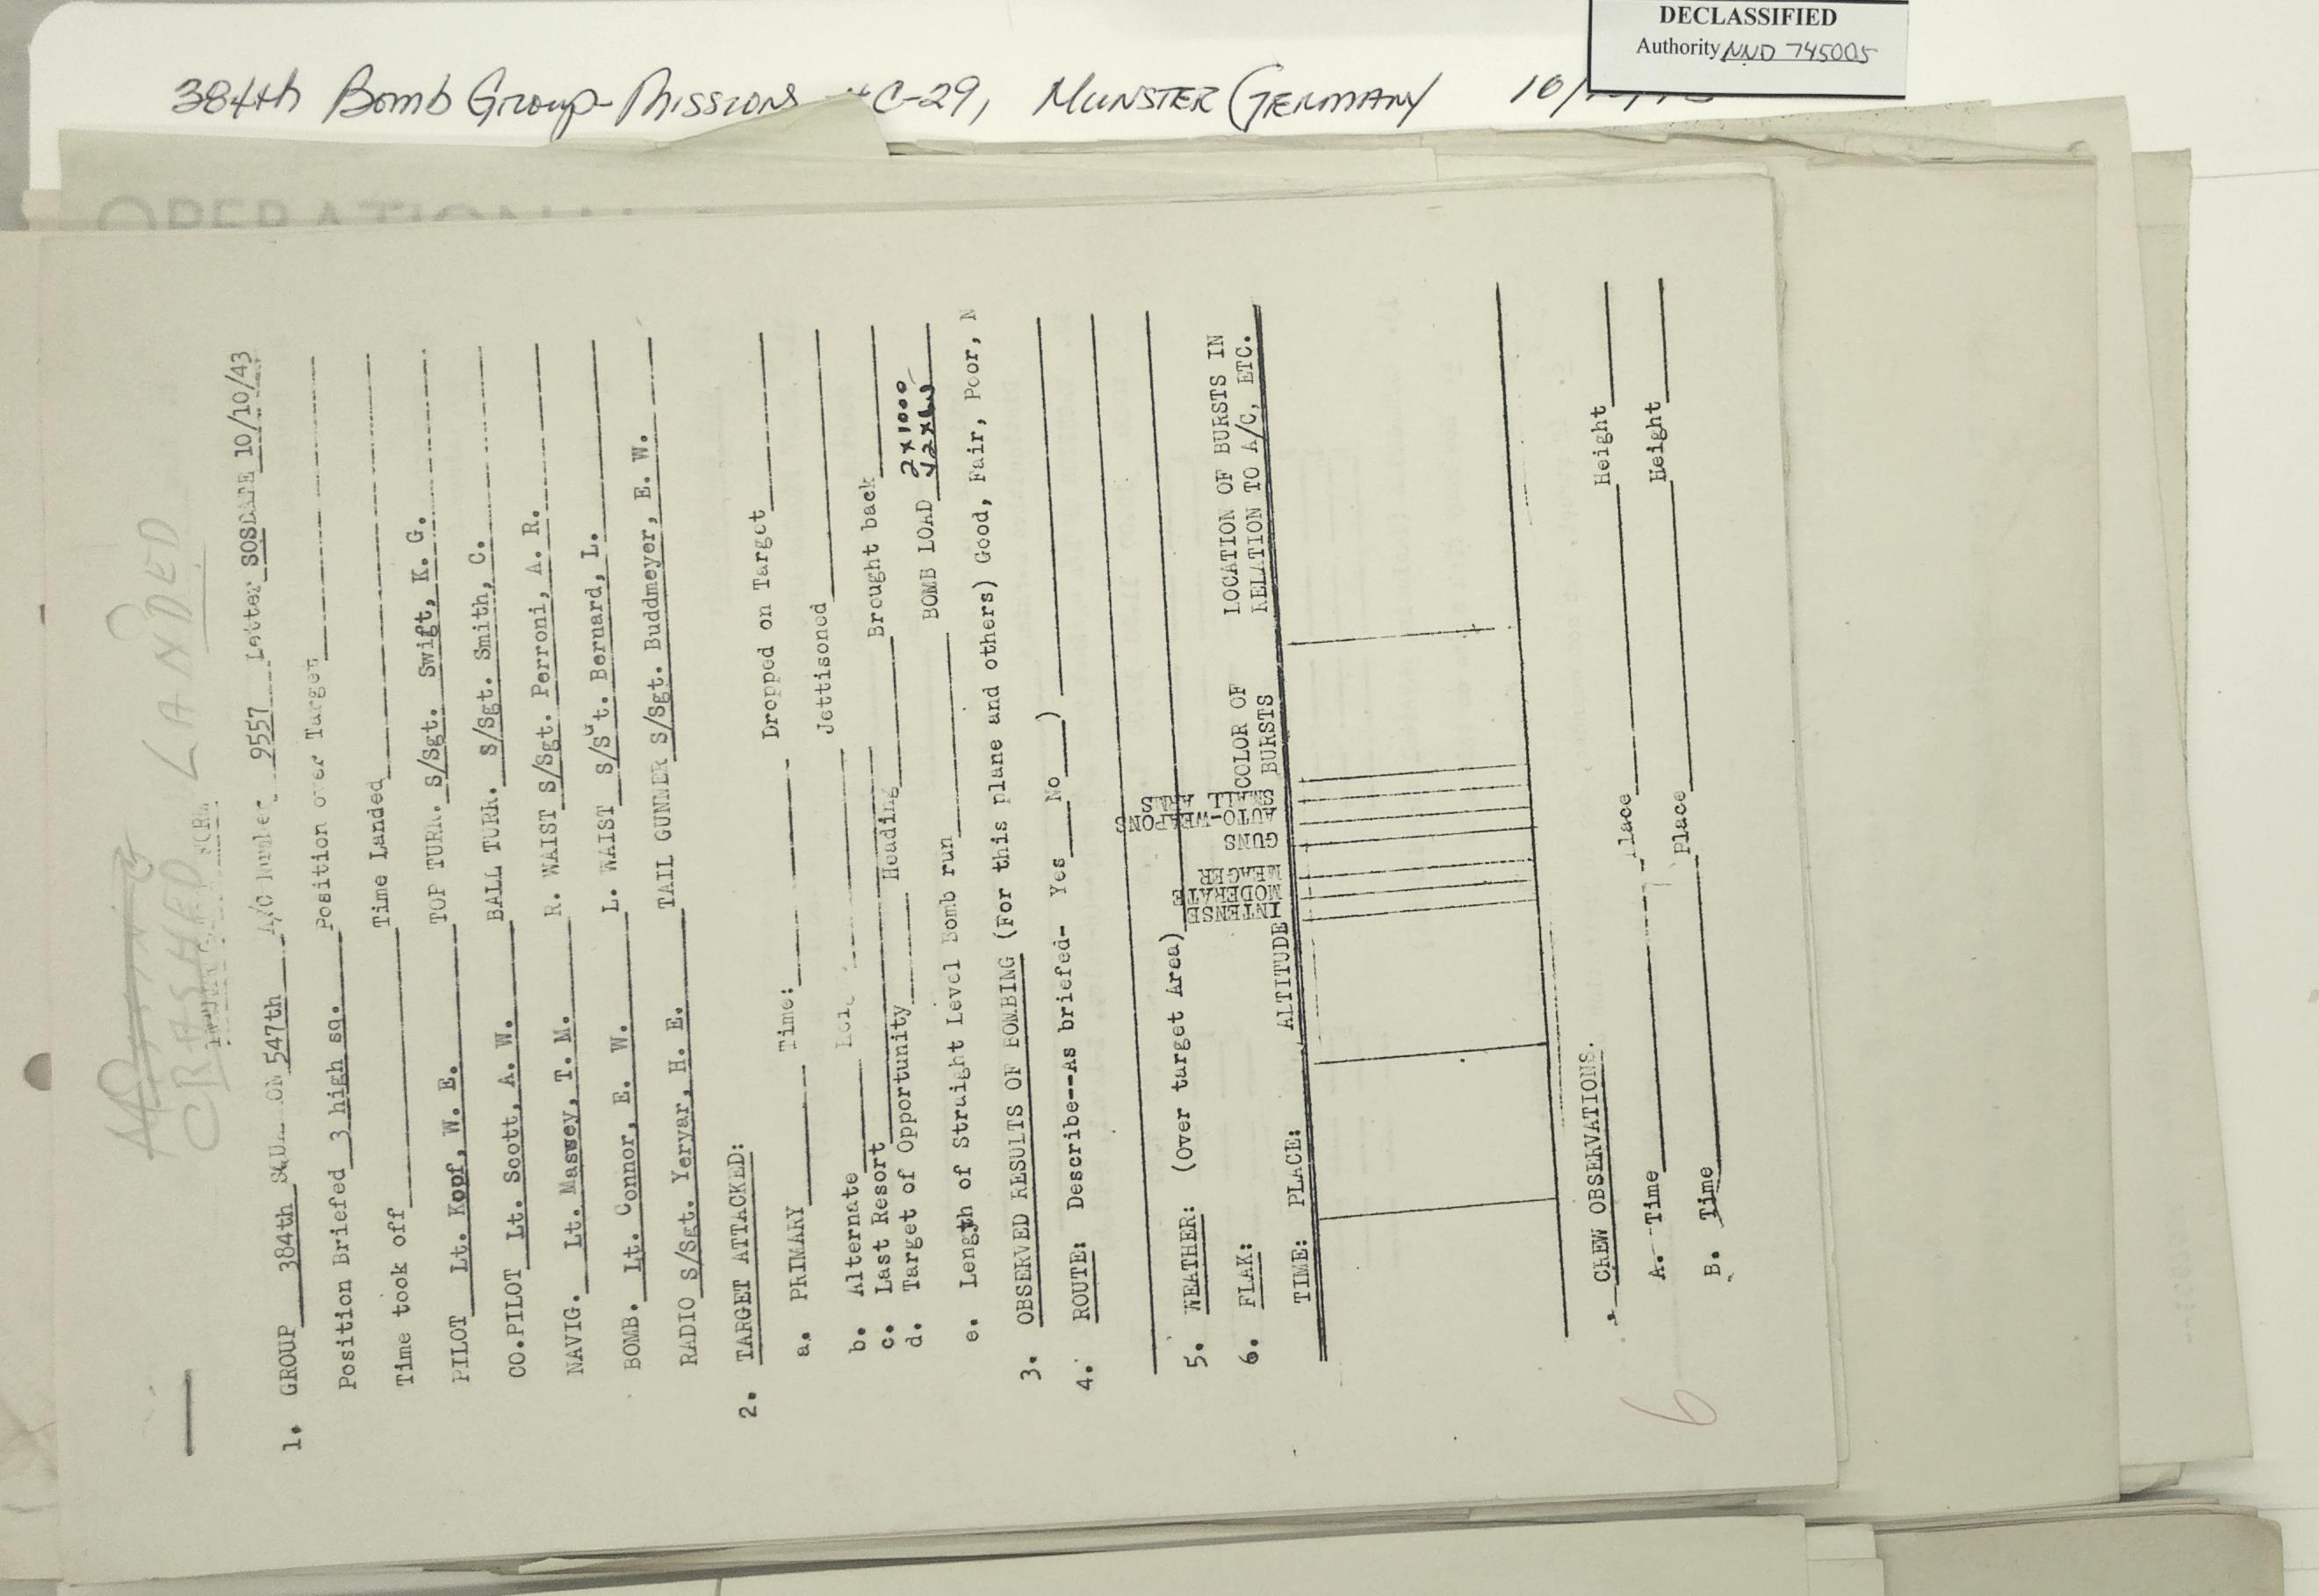 DECLASSIFIED
Authority NND 745005
384th Bomb Group-Missions C-29, MUNSTER GERMANY 10/
OPERATIONAL
CRASHED LANDED
1. GROUP 384th 547th A/C Number 9557 Letter SOSDATE 10/10/43
Position Briefed 3 high sq. Position over Target
Time took off Time Landed
PILOT Lt. Kopf, W. E. TOP TURR. S/Sgt. Swift, K. G.
CO.PILOT Lt. Scott, A. W. BALL TURR. S/Sgt. Smith, C.
NAVIG. Lt. Maswey, T. M. R. WAIST S/Sgt. Perroni, A. R.
BOMB. Lt. Connor, E. W. L. WAIST Bernard, L.
RADIO S/Sgt. Yeryar, H. E. TAIL GUNNER S/Sgt. Buddmeyer, E. W.
2. TARGET ATTACKED:
a. PRIMARY Time: Dropped on Target
b. Alternate Jettisoned
c. Last Resort Brought back
d. Target of Opportunity Heading BOMB LOAD 2 x 1000
e. Length of Straight Level Bomb run
3. OBSERVED RESULTS OF BOMBING (For this plane and others) Good, Fair, Poor, N
4. ROUTE: Describe--As briefed- Yes No )
5. WEATHER: (Over target Area)
6. FLAK:
TIME: PLACE: ALTITUDE INTENSE MODERATE MEAGER GUNS AUTO-WEAPONS COLOR OF BURSTS LOCATION OF BURSTS IN RELATION TO A/C, ETC.
CREW OBSERVATIONS.
A. Time Place Height
B. Time Place Height
6